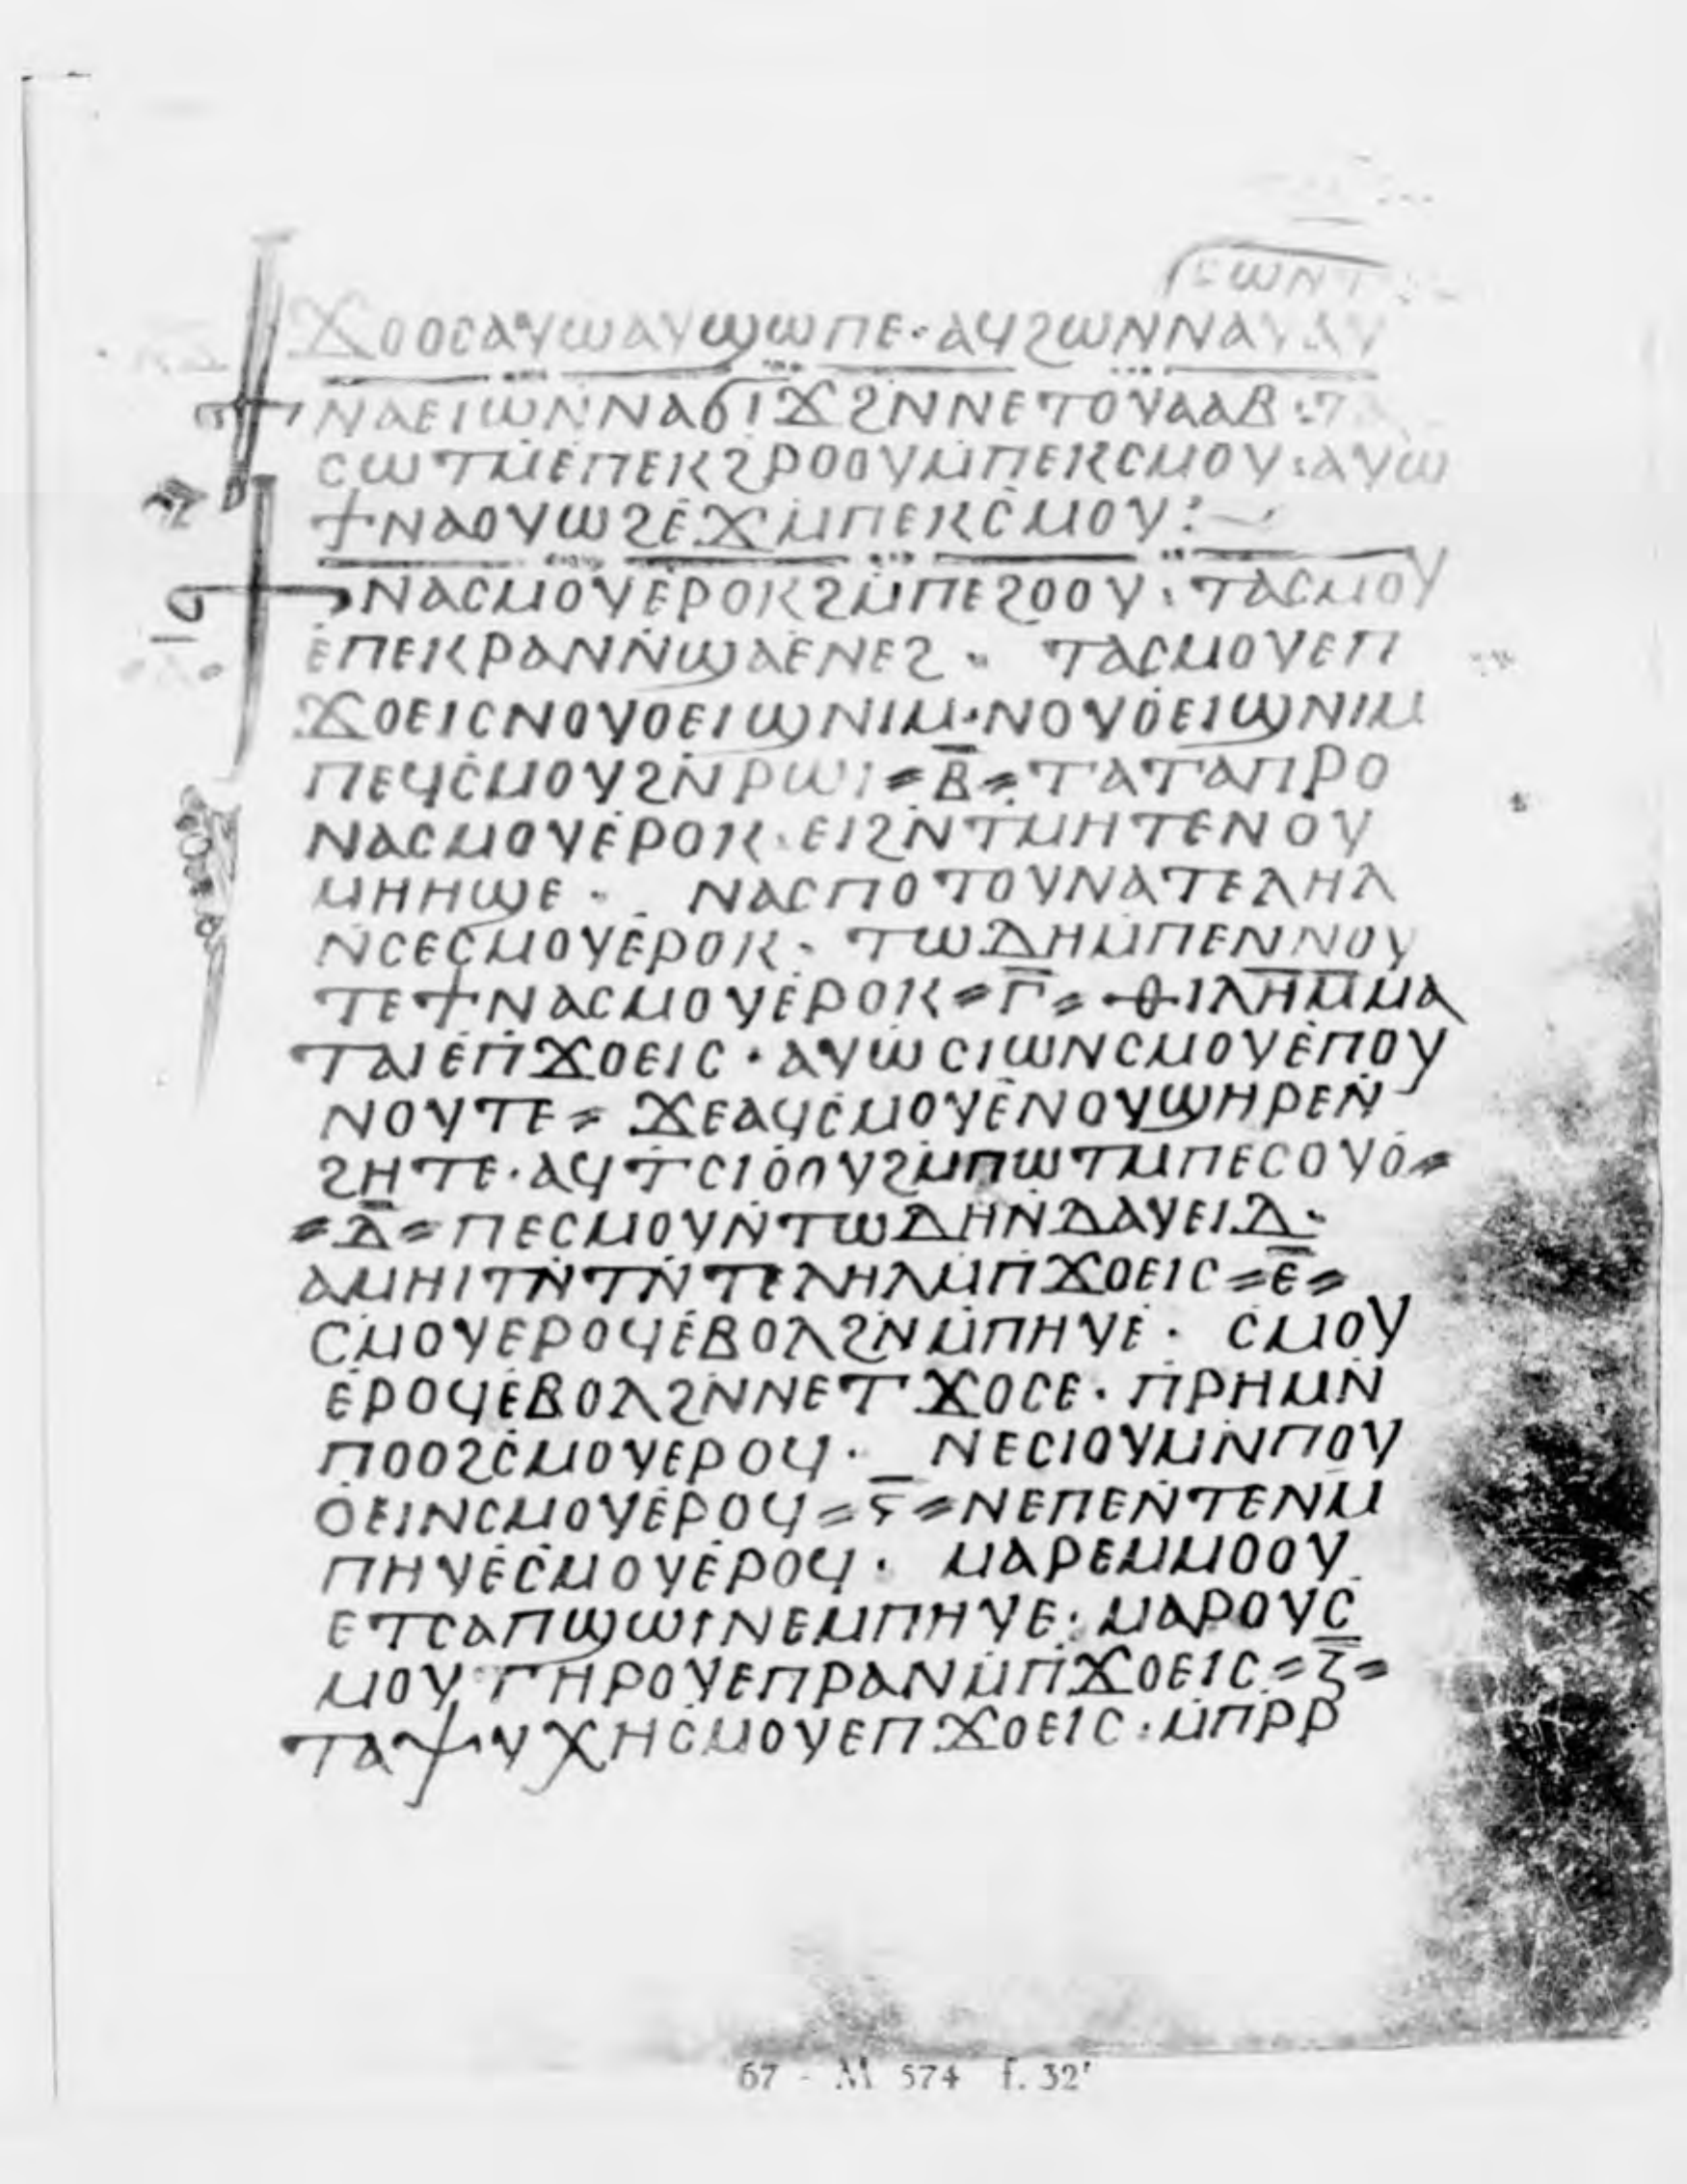 ⲥⲱⲛⲧ
ϫⲟⲟⲥⲁⲩⲱⲁⲩϣⲱⲡⲉ·ⲁϥϩⲱⲛⲛⲛⲁⲩ
ⲛⲁⲉⲓⲱⲛⲛⲁϭⲓϫϩⲛⲛⲉⲧⲟⲩⲁⲁⲃ:
ⲥⲱⲧⲙⲉⲡⲉⲕϩⲣⲟⲟⲩⲙⲡⲉⲕⲥⲙⲟⲩ:ⲁⲩⲱ
ϯⲛⲁⲟⲩⲱϩⲉϫⲙⲡⲉⲕⲥⲙⲟⲩ:
ϯⲛⲁⲥⲙⲟⲩⲉⲣⲟⲕϩⲙⲡⲉϩⲟⲟⲩ:ⲧⲁⲥⲙⲟⲩ
ⲉⲡⲉⲕⲣⲁⲛⲛϣⲁⲉⲛⲉϩ· ⲧⲁⲥⲙⲟⲩⲉⲡ
ϫⲟⲉⲓⲥⲛⲟⲩⲟⲉⲓϣⲛⲓⲙ·ⲛⲟⲩⲟⲉⲓϣⲛⲓⲙ
ⲡⲉϥⲥⲙⲟⲩϩⲛⲣⲱⲓ=ⲃ̅=ⲧⲁⲧⲁⲡⲣⲟ
ⲛⲁⲥⲙⲟⲩⲉⲣⲟⲕ·ⲉⲓϩⲛⲧⲙⲏⲧⲉⲛⲟⲩ
ⲙⲏⲏϣⲉ· ⲛⲁⲥⲡⲟⲧⲟⲩⲛⲁⲧⲉⲗⲏⲗ
ⲛⲥⲉⲥⲙⲟⲩⲉⲣⲟⲕ· ⲧⲱⲇⲏⲙⲡⲉⲛⲛⲟⲩ
ⲧⲉϯⲛⲁⲥⲙⲟⲩⲉⲣⲟⲕ=ⲅ̅=ⲑⲓⲗⲏⲙⲙⲁ
ⲧⲁⲓⲉⲡϫⲟⲉⲓⲥ·ⲁⲩⲱⲥⲓⲱⲛⲥⲙⲟⲩⲉⲡⲟⲩ
ⲛⲟⲩⲧⲉ=ϫⲉⲁϥⲥⲙⲟⲩⲉⲛⲟⲩϣⲏⲣⲉⲛ
ϩⲏⲧⲉ·ⲁϥⲧⲥⲓⲟⲟⲩϩⲙⲡⲱⲧⲙⲡⲉⲥⲟⲩⲟ=
=ⲇ̅=ⲡⲉⲥⲙⲟⲩⲛⲧⲱⲇⲏⲛⲇⲁⲩⲉⲓⲇ·
ⲁⲙⲏⲓⲧⲛⲧⲛⲧⲉⲗⲏⲗⲙⲡϫⲟⲉⲓⲥ=ⲉ̅=
ⲥⲙⲟⲩⲉⲣⲟϥⲉⲃⲟⲗϩⲛⲙⲡⲏⲩⲉ· ⲥⲙⲟⲩ
ⲉⲣⲟϥⲉⲃⲟⲗϩⲛⲛⲉⲧϫⲟⲥⲉ·ⲡⲣⲏⲙⲛ
ⲡⲟⲟϩⲥⲙⲟⲩⲉⲣⲟϥ· ⲛⲉⲥⲓⲟⲩⲙⲛⲡⲟⲩ
ⲟⲉⲓⲛⲥⲙⲟⲩⲉⲣⲟϥ=ⲋ̅=ⲛⲉⲡⲉⲛⲧⲉⲛⲙ
ⲡⲏⲩⲉⲥⲙⲟⲩⲉⲣⲟϥ· ⲙⲁⲣⲉⲙⲙⲟⲟⲩ
ⲉⲧⲥⲁⲡϣⲱⲓⲛⲉⲙⲡⲏⲩⲉ:ⲙⲁⲣⲟⲩⲥ
ⲙⲟⲩⲧⲏⲣⲟⲩⲉⲡⲣⲁⲛⲙⲡϫⲟⲉⲓⲥ=ⲍ̅=
ⲧⲁⲯⲩⲭⲏⲥⲙⲟⲩⲉⲡϫⲟⲉⲓⲥ:ⲙⲡⲣⲣ
67 - M 574 f. 32'